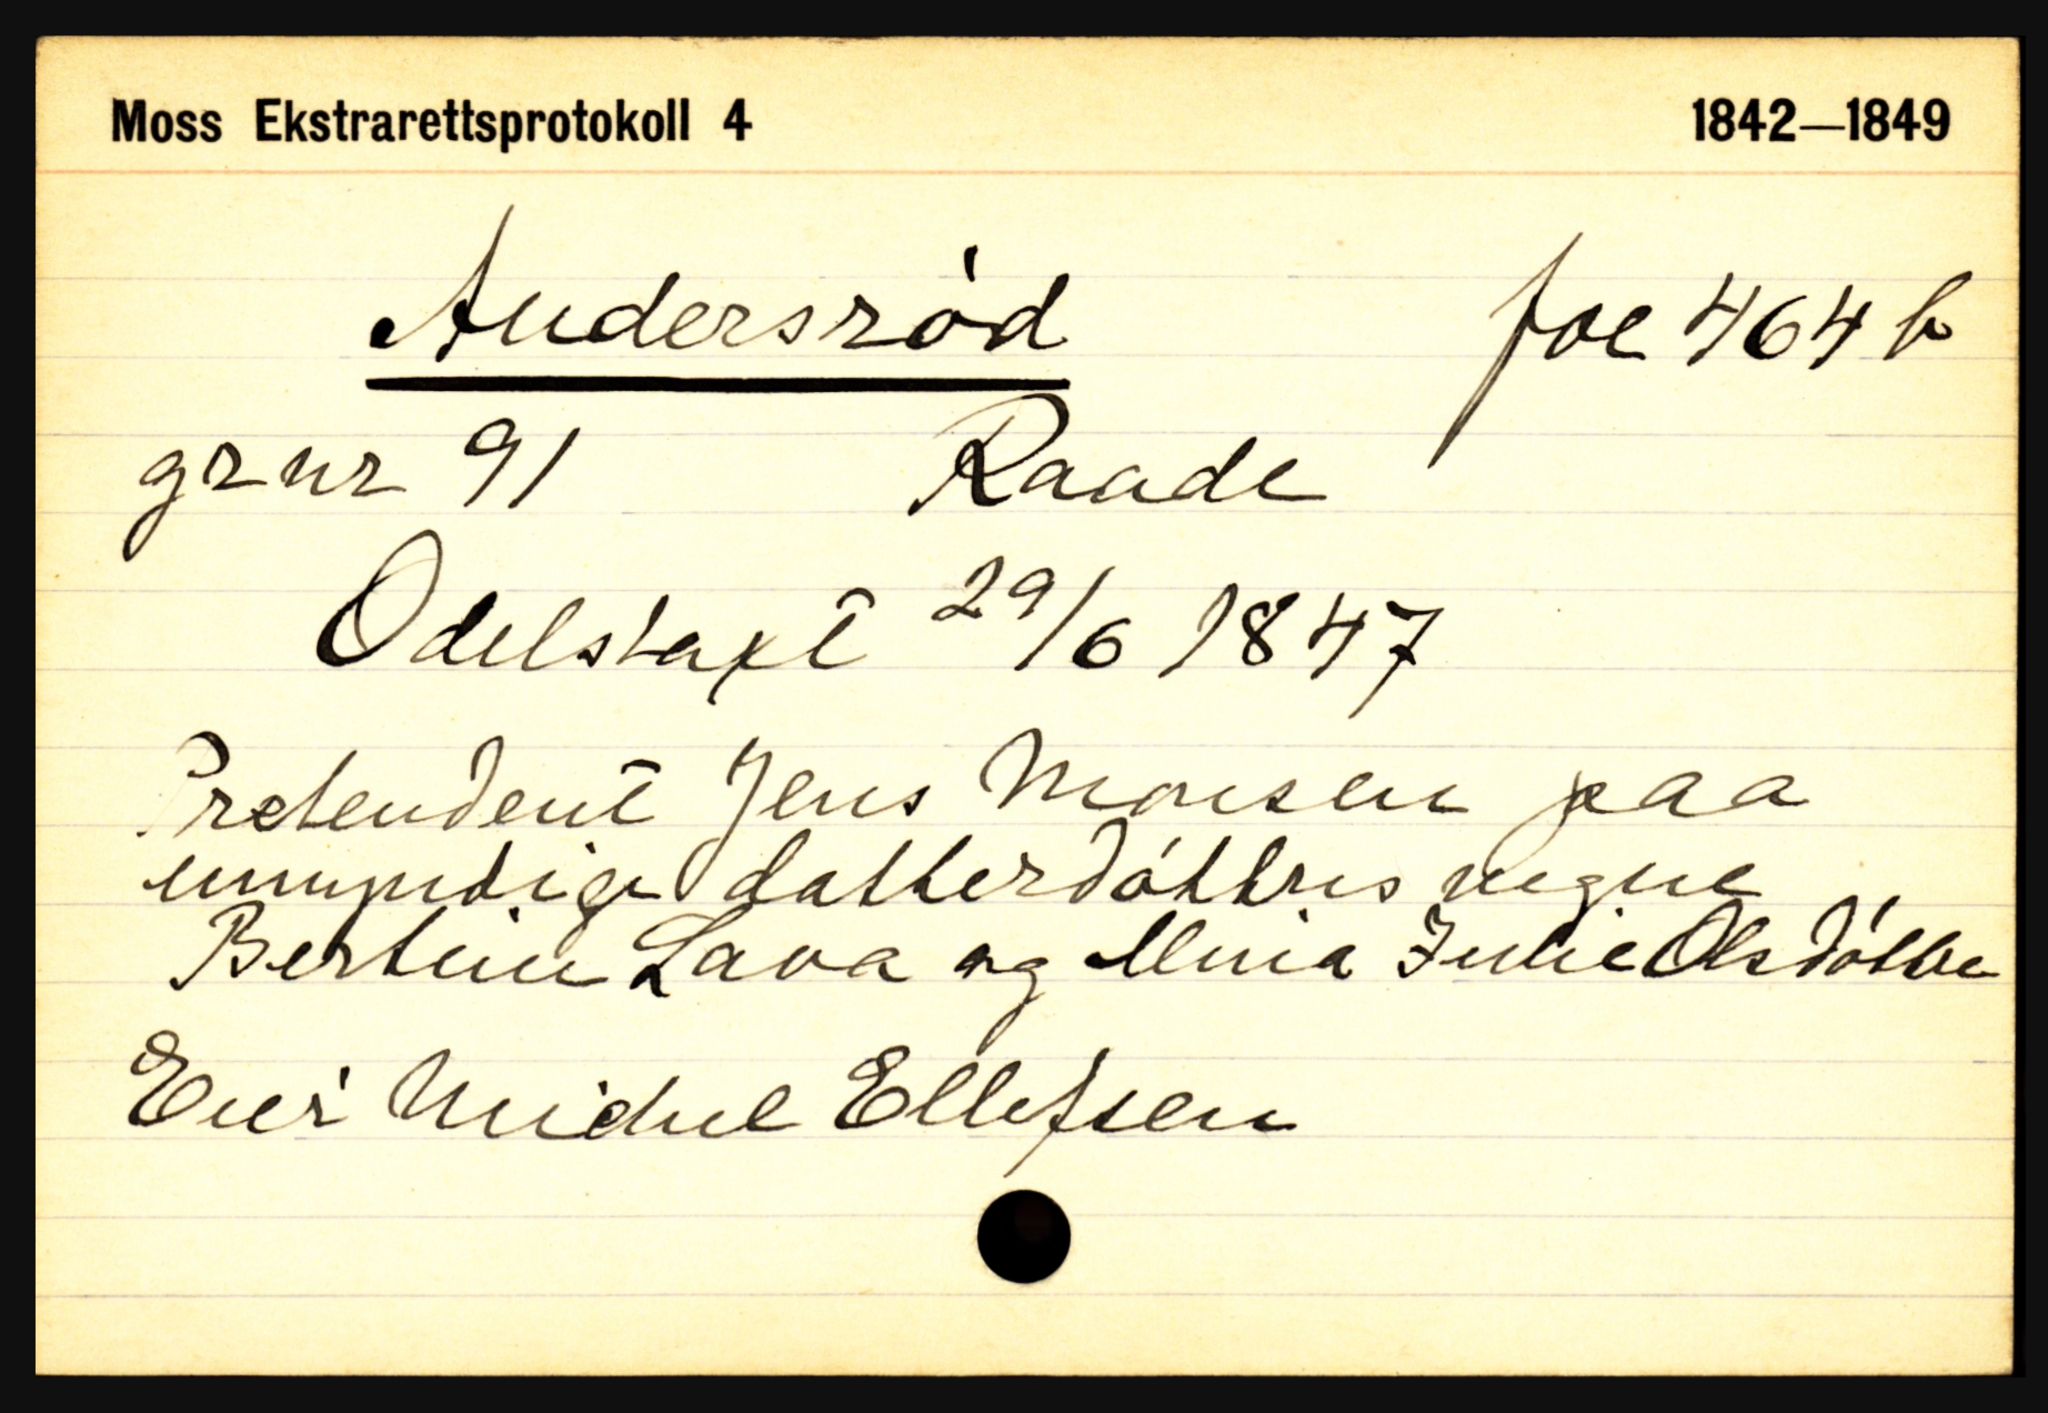 Moss Ekstrarettsprotokoll 4 1842—1849
Andersród foe 464 b
grnr 91 Raade
Odelstaxt 29/6 1847
Pretendent Jens Monsen paa
umyndige datterdóttres vegne
Bertine Lava og Mina Julie Olsdóttre
Eier Michel Ellefsen